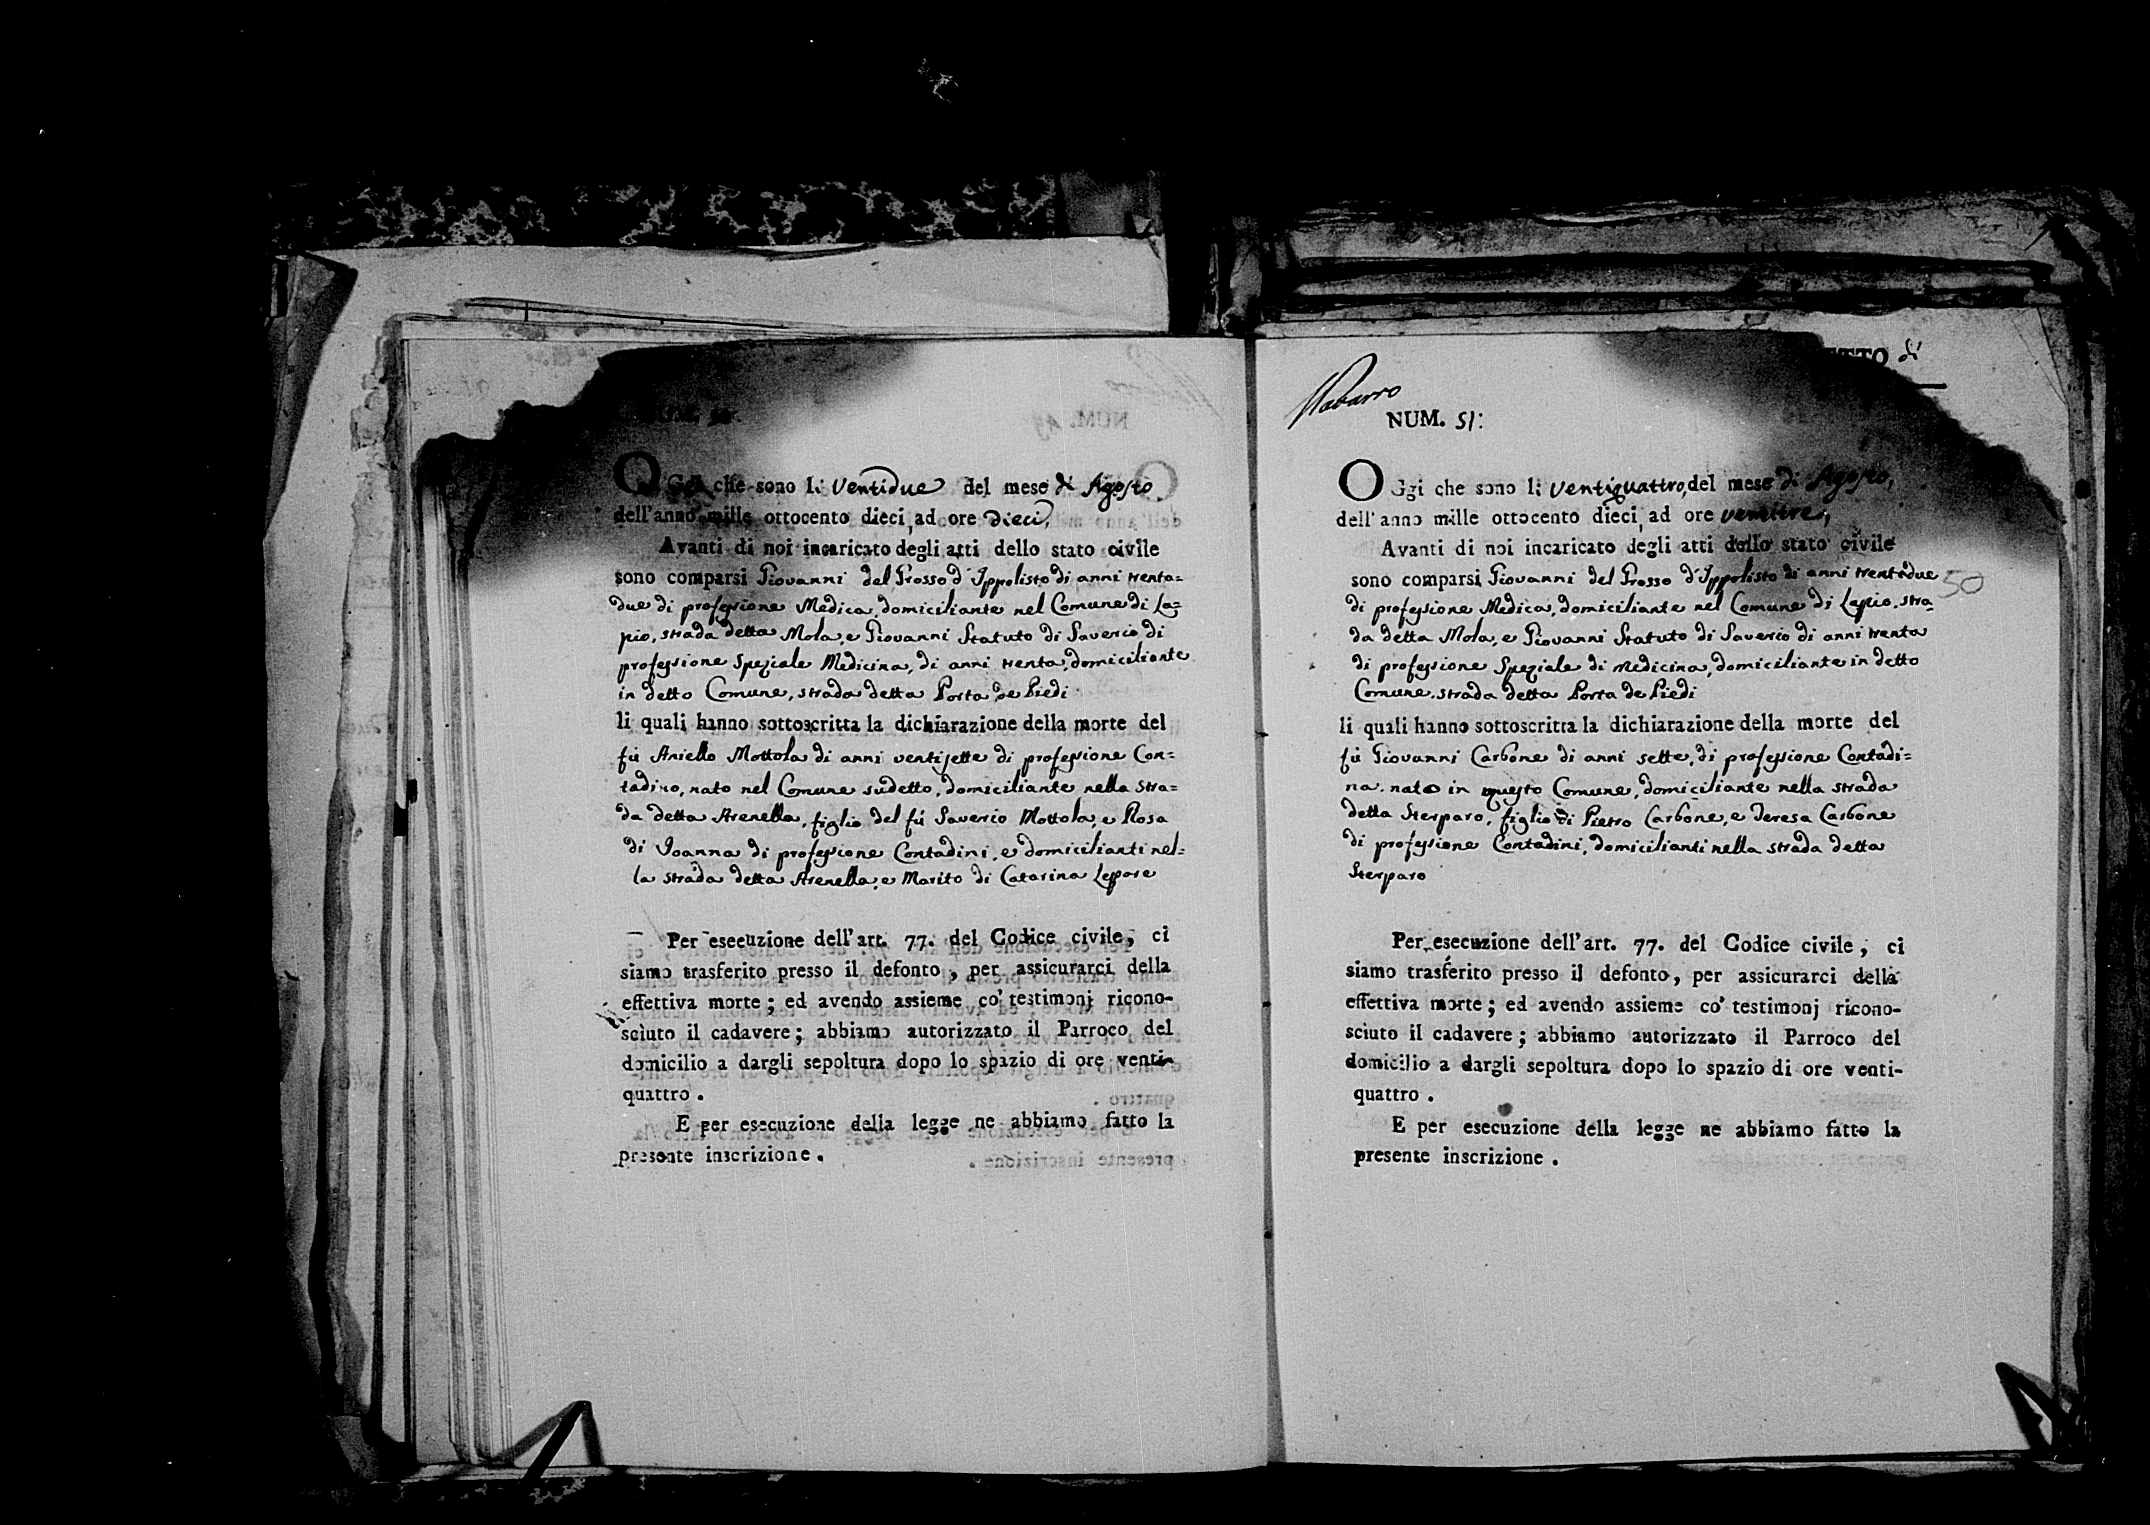 OGgi che sono li Ventidue del mese di Agosto
dell'anno mille ottocento dieci, ad ore dieci,
Avanti di noi incaricato degli atti dello stato civile
sono comparsi Giovanni del Grosso d'Ippolisto di anni trenta=
due di professione Medica, domiciliante nel Comune di La=
pio, strada detta Mola, e Giovanni Statuto di Saverio di
professione Speziale Medicina, di anni trenta, domiciliante
in detto Comune, strada detta Porta de Piedi
li quali hanno sottoscritta la dichiarazione della morte del
fù Aniello Mottola di anni ventisette di professione Con=
tadino, nato nel Comune sudetto, domiciliante nella stra=
da detta Arenella, figlio del fù Saverio Mottola, e Rosa
di Joanna di professione Contadini, e domicilianti nel=
la strada detta Arenella, e Marito di Catarina Lepore
Per esecuzione dell'art. 77. del Codice civile, ci
siamo trasferito presso il defonto, per assicurarci della
effettiva morte; ed avendo assieme co' testimonj ricono-
sciuto il cadavere; abbiamo autorizzato il Parroco del
domicilio a dargli sepoltura dopo lo spazio di ore venti-
quattro.
E per esecuzione della legge ne abbiamo fatto la
presente inscrizione.
di
Navarro
NUM. 51:
OGgi che sono li ventiquattro, del mese di Agosto,
dell'anno mille ottocento dieci, ad ore ventitre,
Avanti di noi incaricato degli atti dello stato civile
sono comparsi Giovanni del Grosso d'Ippolisto di anni trentadue
50
di professione Medica, domiciliante nel Comune di Lapio, stra=
da detta Mola, e Giovanni Statuto di Saverio di anni trenta
di professione Speziale di Medicina, domiciliante in detto
Comune, strada detta Porta de Piedi
li quali hanno sottoscritta la dichiarazione della morte del
fù Giovanni Carbone di anni sette, di professione Contadi=
na, nato in questo Comune, domiciliante nella strada
detta Sterparo, figlio di Pietro Carbone, e Teresa Carbone
di professione Contadini, domicilianti nella strada detta
Sterparo
Per esecuzione dell'art. 77. del Codice civile, ci
siamo trasferito presso il defonto, per assicurarci della
effettiva morte; ed avendo assieme co' testimonj ricono-
sciuto il cadavere; abbiamo autorizzato il Parroco del
domicilio a dargli sepoltura dopo lo spazio di ore venti-
quattro.
E per esecuzione della legge ne abbiamo fatto la
presente inscrizione.